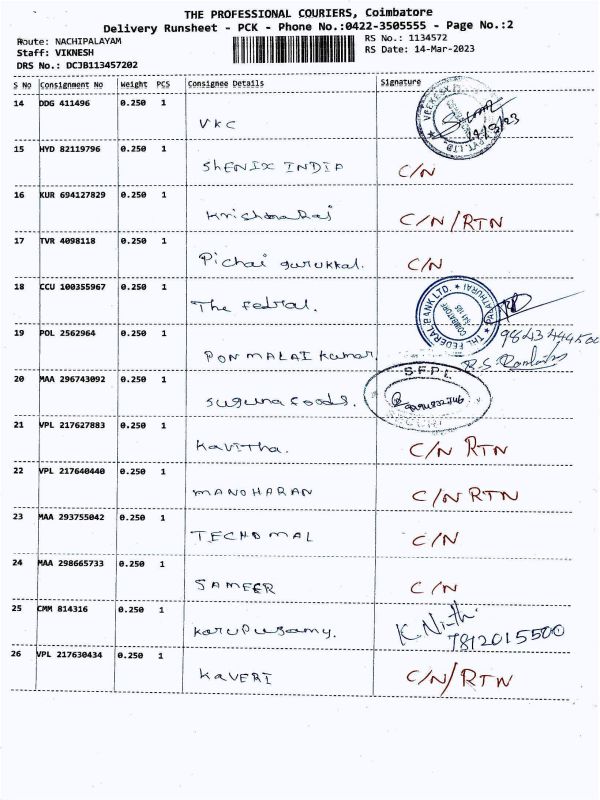 THE PROFESSIONAL COURIERS, Coimbatore
Delivery Runsheet - PCK - Phone No.:0422-3505555 - Page No.:2
Route: NACHIPALAYAM RS No.: 1134572
Staff: VIKNESH RS Date: 14-Mar-2023
DRS No.: DCJB113457202
S No Consignment No Weight PCS Consignee Details Signature
14 DDG 411496 0.250 1
VKC
14/3/23
15 HYD 82119796 0.250 1
SHENIX INDIA C/N
16 KUR 694127829 0.250 1
Krishnaraj C/N/RTN
17 TVR 4098118 0.250 1
Pichai gurukkal. C/N
18 CCU 100355967 0.250 1
The Fedral. THE FEDERAL BANK LTD. COIMBATORE
19 POL 2562964 0.250 1
PONMALAI Kumar
20 MAA 296743092 0.250 1
suguna foods. S.F.P.L
21 VPL 217627883 0.250 1
Kavitha. C/N RTN
22 VPL 217640440 0.250 1
MANOHARAN C/N RTN
23 MAA 293755042 0.250 1
TECHNO MAL C/N
24 MAA 298665733 0.250 1
SAMEER C/N
25 CMM 814316 0.250 1
Karupusamy. K. Nithi.
7812015500
26 VPL 217630434 0.250 1
KAVERI C/N/RTN